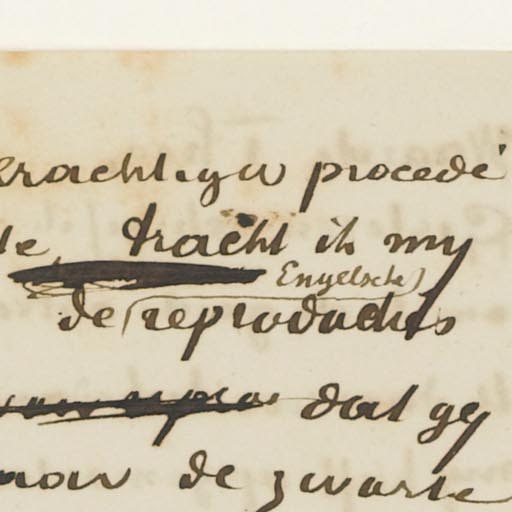 krachtig procedé
tracht ik my
Engelsche
de reproducties
dat gy
de zwarte